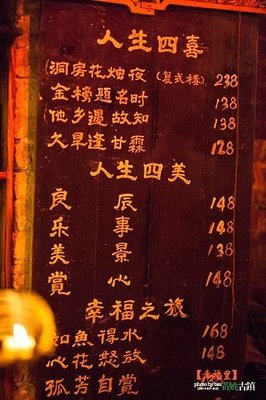 人生四喜
(洞房花烛夜 (复式楼) 238
金榜题名时 138
他乡遇故知 138
久旱逢甘霖 128
人生四美
良 辰 148
乐 事 148
美 景 148
赏 心 148
幸福之旅
如魚得水 168
心花怒放 148
孤芳自赏
photo by ben
黄姚古鎮